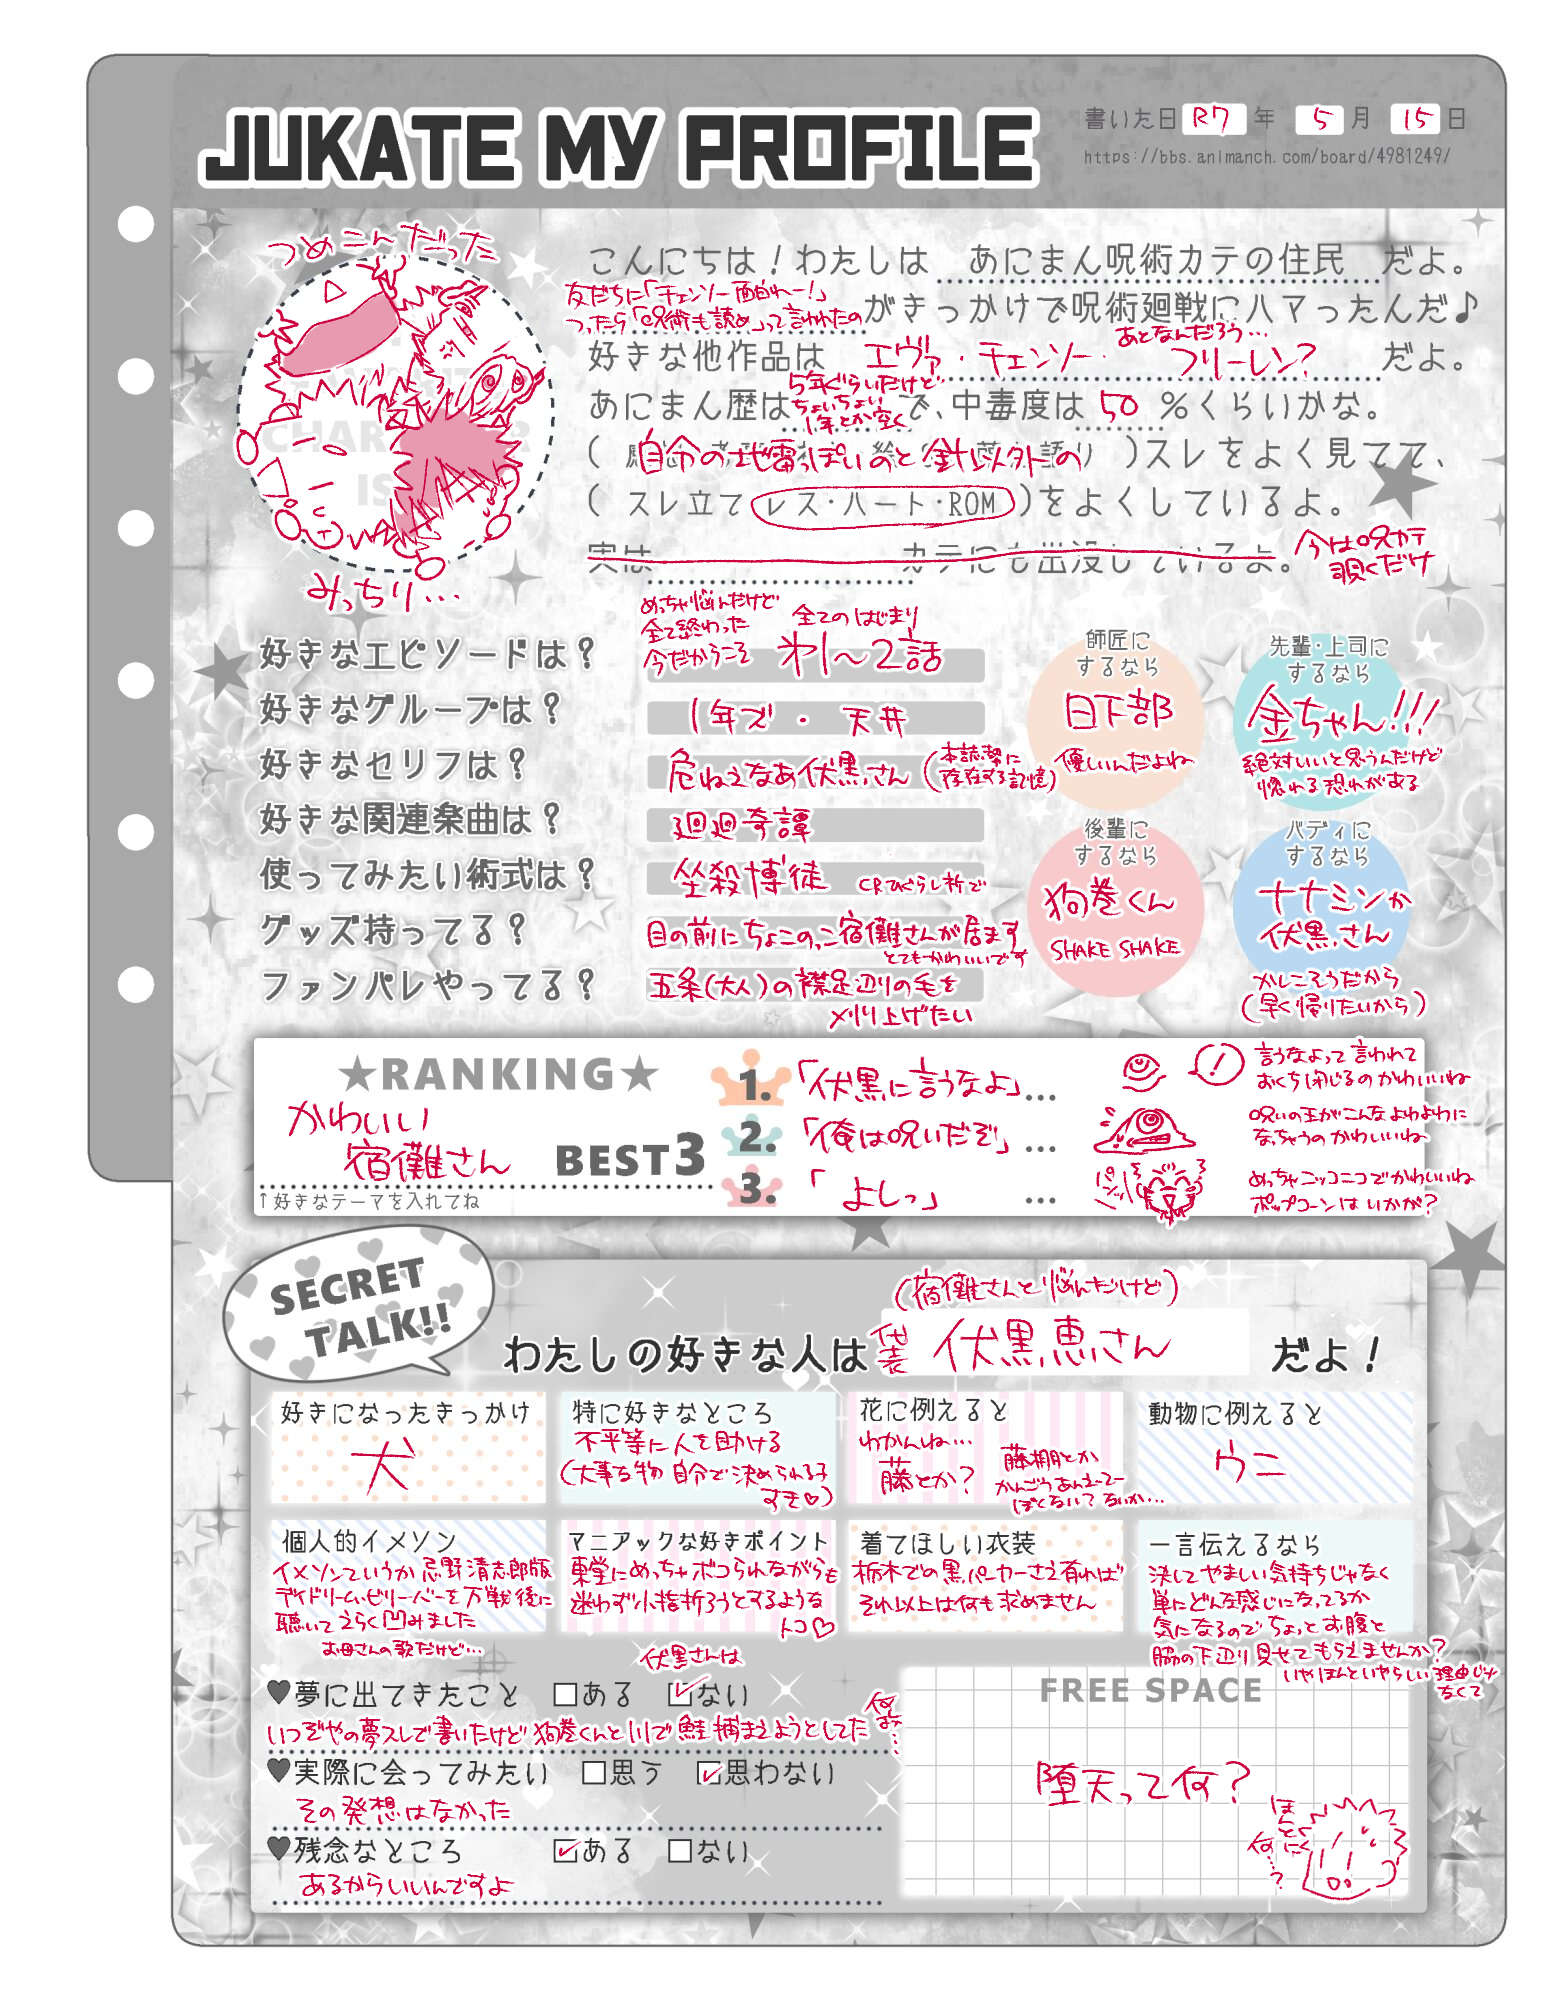 JUKATE MY PROFILE
書いた日 R7 年 5 月 15 日
https://bbs.animanch.com/board/4981249/
つめこんだった
みっちり…
こんにちは！わたしは あにまん呪術カテの住民 だよ。
友だちに「チェンソー面白れー！」
つったら「呪術も読め」って言われたの がきっかけで呪術廻戦にハマったんだ♪
あとなんだろう…
好きな他作品は エヴァ・チェンソー・フリーレン？ だよ。
5年ぐらいだけど
ちょいちょい
1年とか空く
あにまん歴は で、中毒度は 50 %くらいかな。
( 自分の地雷っぽいのと針以外の )スレをよく見てて、
( スレ立て レス・ハート・ROM )をよくしているよ。
実は カテにも出没しているよ。
今は呪カテ
覗くだけ
好きなエピソードは？
めっちゃ悩んだけど
全て終わった
今だからこそ
全てのはじまり
1〜2話
好きなグループは？ 1年ズ・天井
好きなセリフは？ 危ねえなあ伏黒さん (本誌派に
存在する記憶)
好きな関連楽曲は？ 廻廻奇譚
使ってみたい術式は？ 坐殺博徒 CRひぐらし祈で
グッズ持ってる？ 目の前にちょこのっこ宿儺さんが居ます
とてもかわいいです
ファンパレやってる？ 五条(大人)の襟足辺りの毛を
刈り上げたい
師匠に
するなら
日下部
優しいんだよね
先輩・上司に
するなら
金ちゃん!!!
絶対いいと思うんだけど
惚れる恐れがある
後輩に
するなら
狗巻くん
SHAKE SHAKE
バディに
するなら
ナナミンか
伏黒さん
かしこそうだから
(早く帰りたいから)
★RANKING★
かわいい
宿儺さん
BEST3
↑好きなテーマを入れてね
1. 「伏黒に言うなよ」…
！
言うなよって言われて
おくち閉じるのかわいいね
2. 「俺は呪いだぞ」…
呪いの王がこんなよわよわに
なっちゃうのかわいいね
3. 「よしっ」 …
めっちゃニッコニコでかわいいね
ポップコーンはいかが？
SECRET
TALK!!
(宿儺さんと悩んだけど)
わたしの好きな人は 代表 伏黒恵さん だよ！
好きになったきっかけ
犬
特に好きなところ
不平等に人を助ける
(大事な物 自分で決められる子
すき♡)
花に例えると
わかんね…
藤とか？
藤棚とか
ぽくないでないか…
動物に例えると
ウニ
個人的イメソン
イメソンていうか忌野清志郎版
デイドリーム・ビリーバーを万戦後に
聴いてえらく凹みました
お母さんの歌だけど…
マニアックな好きポイント
東堂にめっちゃボコられながらも
迷わず小指折ろうとするような
トコ♡
着てほしい衣装
栃木での黒パーカーさえ有れば
それ以上は何も求めません
一言伝えるなら
決してやましい気持ちじゃなく
単にどんな感じになってるか
気になるのでちょっとお腹と
脇の下辺り見せてもらえませんか？
いやほんといやらしい理由じゃ
なくて
伏黒さんは
♥夢に出てきたこと □ある ☑ない
いつぞやの夢スレで書いたけど狗巻くんと川で鮭捕まえようとしてた
♥実際に会ってみたい □思う ☑思わない
その発想はなかった
♥残念なところ ☑ある □ない
あるからいいんですよ
FREE SPACE
堕天って何？
ほんとに
何…？